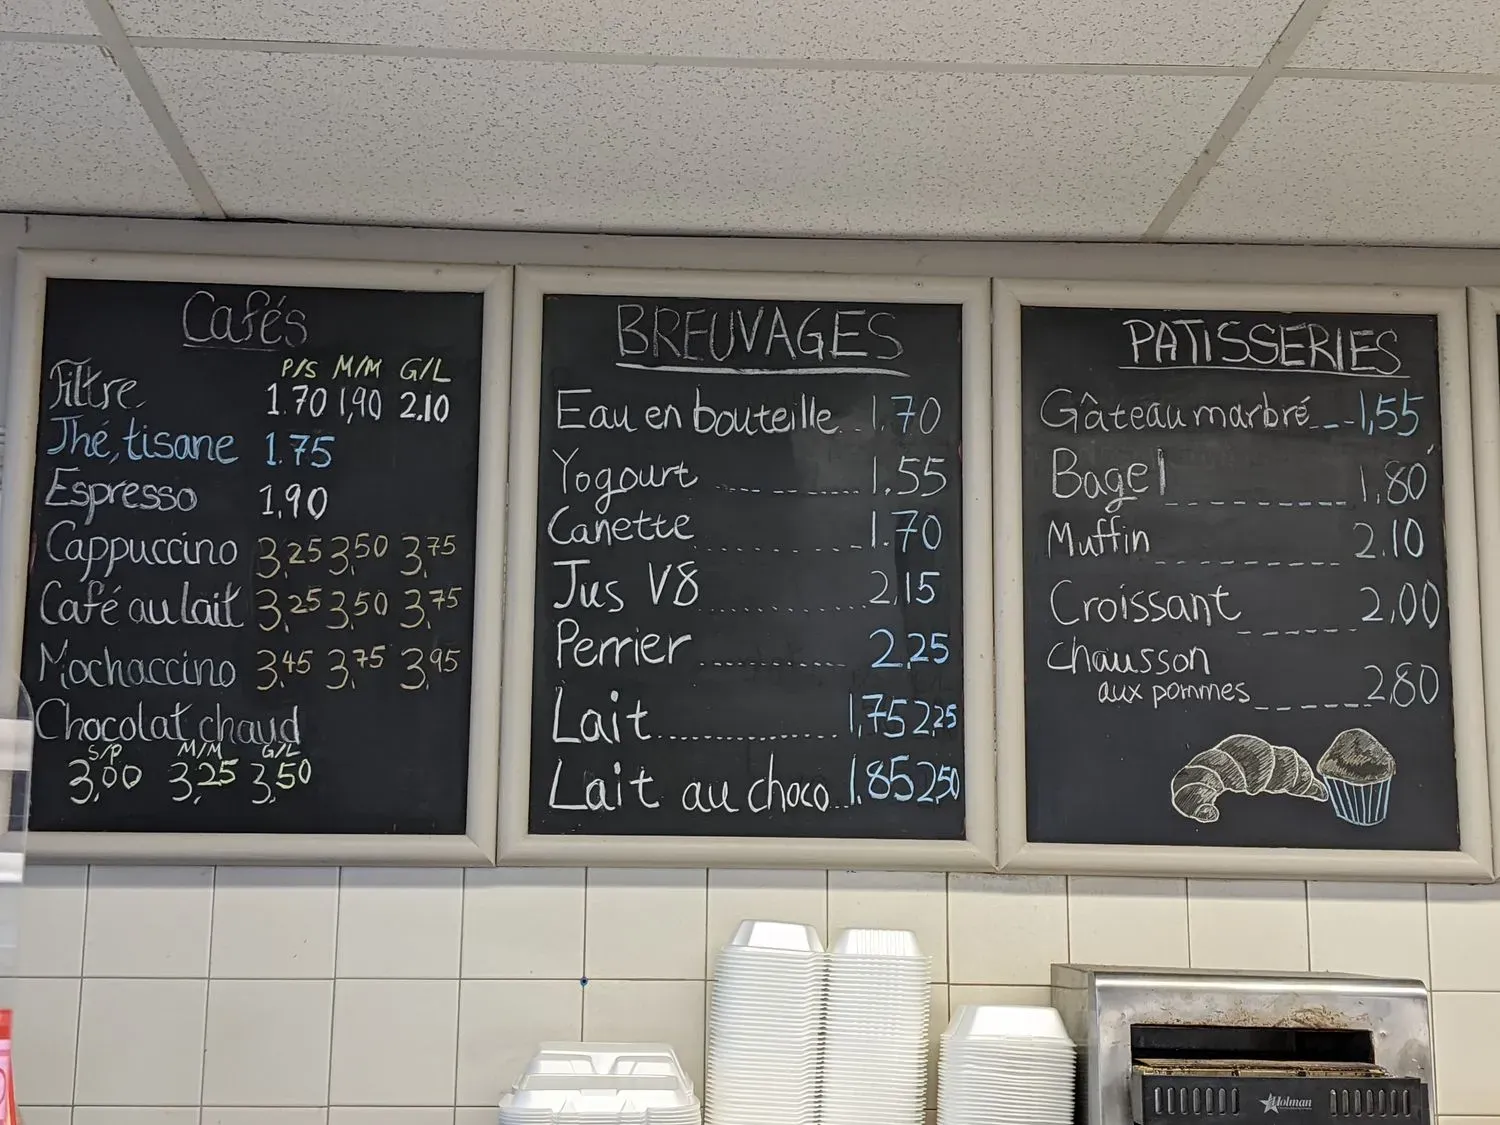 Cafés
P/S M/M G/L
Filtre 1.70 1,90 2.10
Thé, tisane 1.75
Espresso 1,90
Cappuccino 3,25 3,50 3,75
Café au lait 3,25 3,50 3,75
Mochaccino 3,45 3,75 3,95
Chocolat chaud
S/P M/M G/L
3,00 3,25 3,50
BREUVAGES
Eau en bouteille 1,70
Yogourt 1.55
Canette 1.70
Jus V8 2,15
Perrier 2,25
Lait 1,75 2,25
Lait au choco 1.85 2,50
PATISSERIES
Gâteau marbré 1,55
Bagel 1,80
Muffin 2.10
Croissant 2,00
Chausson
aux pommes 2,80
Holman